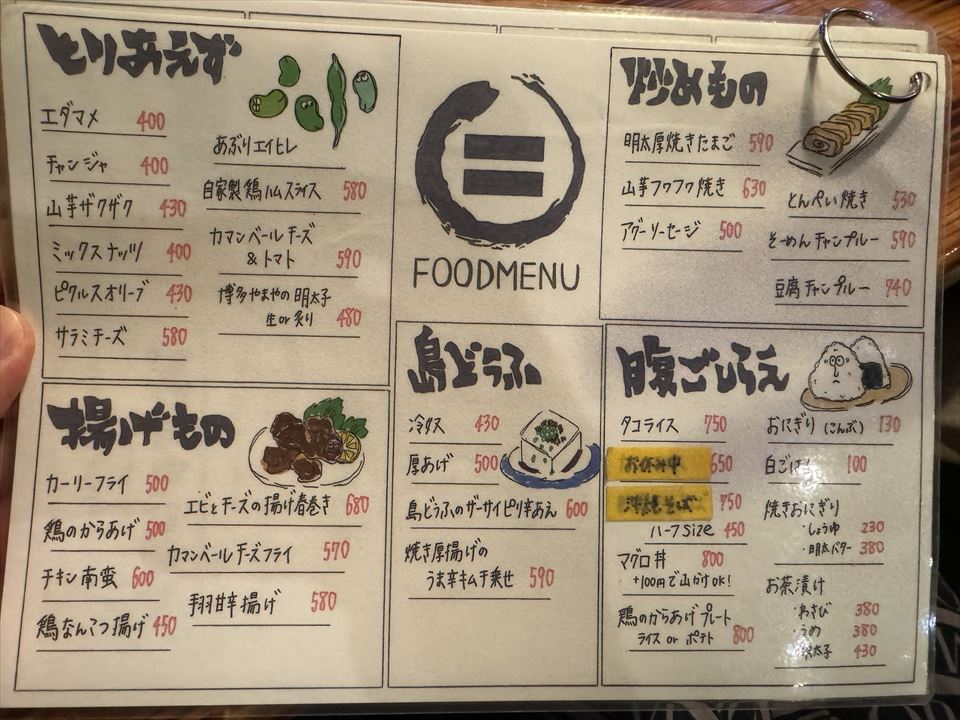 とりあえず
エダマメ 400
チャンジャ 400
山芋ザクザク 430
ミックスナッツ 400
ピクルスオリーブ 430
サラミチーズ 580
あぶりエイヒレ
自家製鶏ハムスライス 580
カマンベールチーズ
&トマト 590
博多やまやの明太子
生or炙り 480
FOODMENU
炒めもの
明太厚焼きたまご 590
山芋フワフワ焼き 630
アグーソーセージ 500
とんぺい焼き 530
そーめんチャンプルー 590
豆腐チャンプルー 740
揚げもの
カーリーフライ 500
鶏のからあげ 500
チキン南蛮 600
鶏なんこつ揚げ 450
エビとチーズの揚げ春巻き 680
カマンベールチーズフライ 570
手羽甘辛揚げ 580
島どうふ
冷ダス 430
厚あげ 500
島どうふのザーサイピリ辛あえ 600
焼き厚揚げの
うま辛キムチ乗せ 590
腹ごしらえ
タコライス 750
650
沖縄そば 750
ハーフSIZE 450
マグロ丼 800
+100円で山かけOK!
鶏のからあげプレート
ライス or ポテト 800
おにぎり (こんぶ) 130
白ごはん 100
焼きおにぎり
・しょうゆ 230
・明太バター 380
お茶漬け
・わさび 380
・うめ 380
・明太子 430